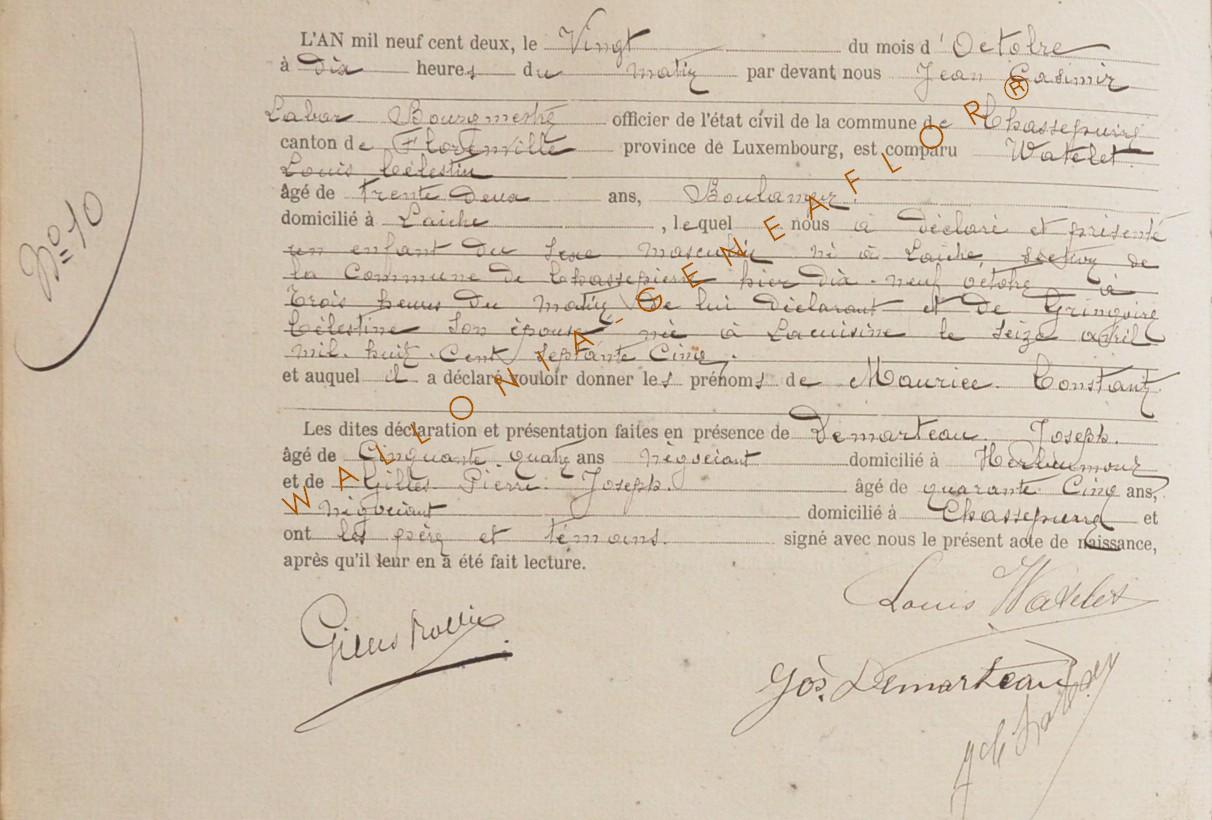 L'AN mil neuf cent deux, le Vingt du mois d'Octobre
à Dix heures du matin par devant nous Jean Casimir
Bourgmestre officier de l'état civil de la commune de Chassepierre
canton de Florenville province de Luxembourg, est comparu Watelet
Louis Célestin
âgé de trente Deux ans, Boulanger.
domicilié à Laiche, lequel nous a déclaré et présenté
un enfant du sexe masculin né à Laiche, section de
la Commune de Chassepierre hier dix-neuf octobre à
trois heures du matin, de lui déclarant et de Gringoire
Célestine son épouse née à Lacuisine le seize avril
mil. huit. Cent septante Cinq.
et auquel il a déclaré vouloir donner les prénoms de Maurice Constant
Les dites déclaration et présentation faites en présence de Demarteau Joseph.
âgé de Cinquante quatre ans négociant domicilié à Herbeumont
et de Gilles Pierre Joseph. âgé de quarante Cinq ans,
négociant domicilié à Chassepierre et
ont les père et témoins. signé avec nous le présent acte de naissance,
après qu'il leur en a été fait lecture.
N° 10
Louis Watelet
Gilles
Jos. Demarteau
WALLONIA-GENEAFLOR®